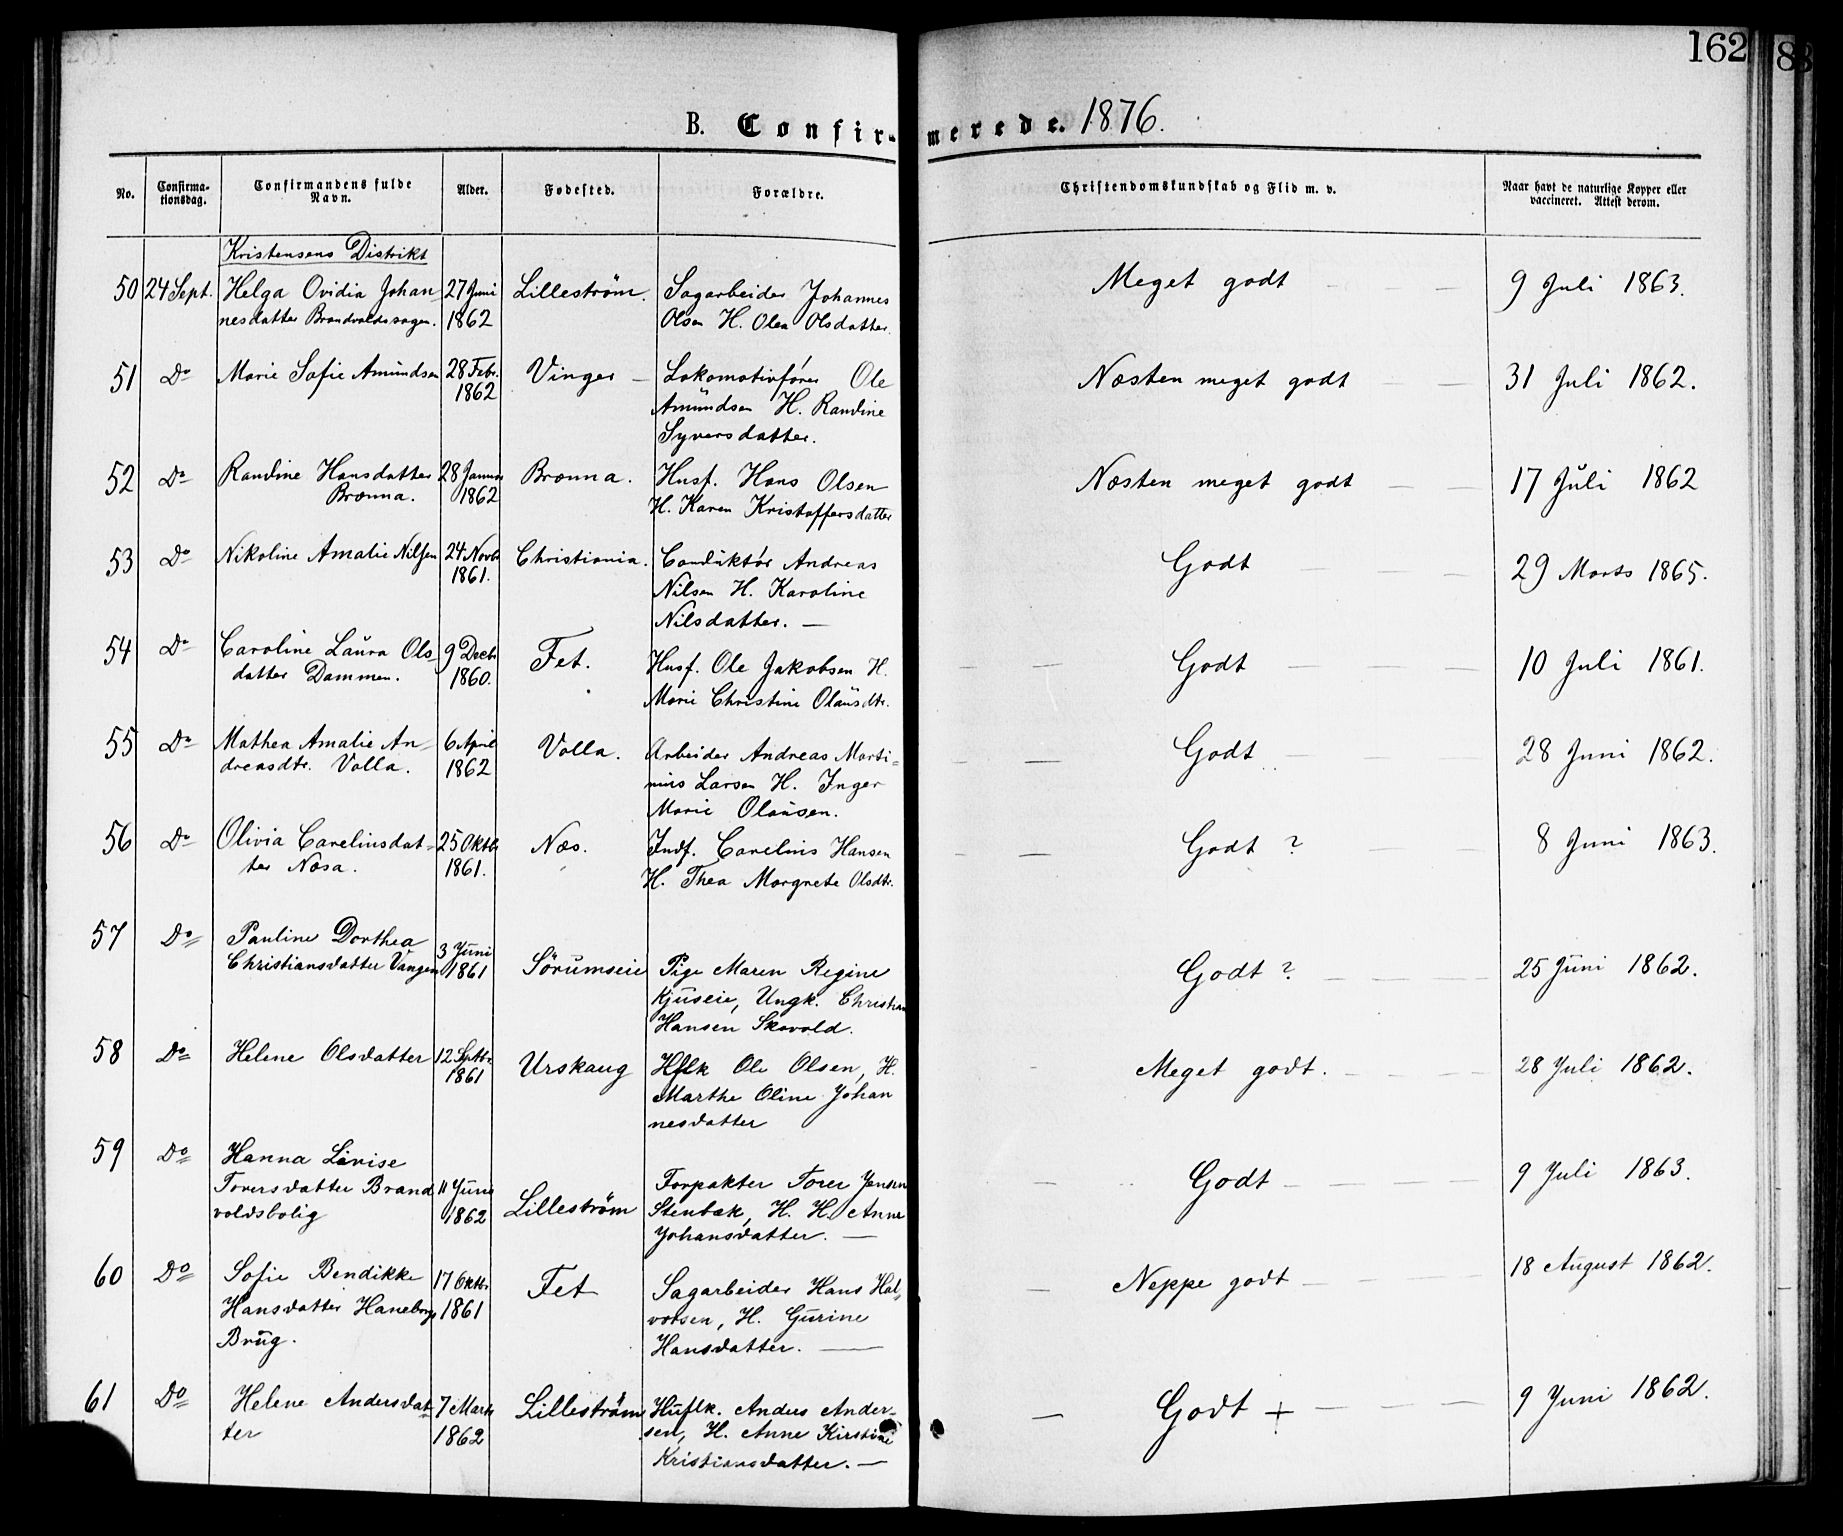 162
8
B. Confirmerede. 1876.
No. Confirmationsdag. Confirmandens fulde Navn. Alder. Fødested. Forældre. Christendomskundskab og Flid m. v. Naar havt de naturlige Kopper eller vaccineret. Attest derom.
Kristensens Distrikt
50 24 Sept. Helga Ovidia Johan 27 Juni Lilleström. Sagarbeider Johannes Meget godt 9 Juli 1863.
nesdatter Brandvoldssagen. 1862 Olsen H. Olea Olsdatter.
51 Do Marie Sofie Amundsen 28 Febr. Vinger — Lokomotivfører Ole Næsten meget godt 31 Juli 1862.
1862 Amundsen H. Randine
Syversdatter.
52 Do Randine Hansdatter 28 Januar Brænna. Husf. Hans Olsen Næsten meget godt 17 Juli 1862
Brænna. 1862 H. Karen Kristoffersdatter
53 Do Nikoline Amalie Nilsen 24 Novb. Christiania. Conduktør Andreas Godt 29 Marts 1865.
1861. Nilsen H. Karoline
Nilsdatter. —
54 Do Caroline Laura Ols- 9 Decb. Fet. Husf. Ole Jakobsen H. Godt 10 Juli 1861.
datter Dammen. 1860. Marie Christine Olausdtr.
55 Do Mathea Amalie An- 6 April Volla. Arbeider Andreas Marti- Godt 28 Juni 1862.
dreasdtr. Volla. 1862 nius Larsen H. Inger
Marie Olausen.
56 Do Olivia Carelinsdat- 25 Oktb. Næs. Indf. Carelius Hansen Godt ? 8 Juni 1863.
ter Næsa. 1861. H. Thea Margrete Olsdtr.
57 Do Pauline Dorthea
Christiansdatter Vangen 3 Juni 1861 Sörumseie Pige Maren Regine Godt ? 25 Juni 1862.
Kjuseie, Ungk. Christian
Hansen Skovold.
58 Do Helene Olsdatter 12 Septbr. Urskaug Hflk Ole Olsen, H. Meget godt. 28 Juli 1862.
1861 Marthe Oline Johan
nesdatter
59 Do Hanna Lovise
Toversdatter Brand 11 Juni Lilleström Forpakter Torer Jensen Godt 9 Juli 1863.
voldsbolig 1862 Stenbæk, H. H. Anne
Johansdatter. —
60 Do Sofie Bendikke 17 Oktbr. Fet Sagarbeider Hans Hal- Neppe godt 18 August 1862.
Hansdatter Haneborg 1861 vorsen, H. Gurine
Brug. Hansdatter. —
61 Do Helene Andersdat- 7 Marts Lilleström Huflk. Anders Ander- Godt + 9 Juni 1862.
ter 1862 sen, H. Anne Kirstine
Kristiansdatter. —